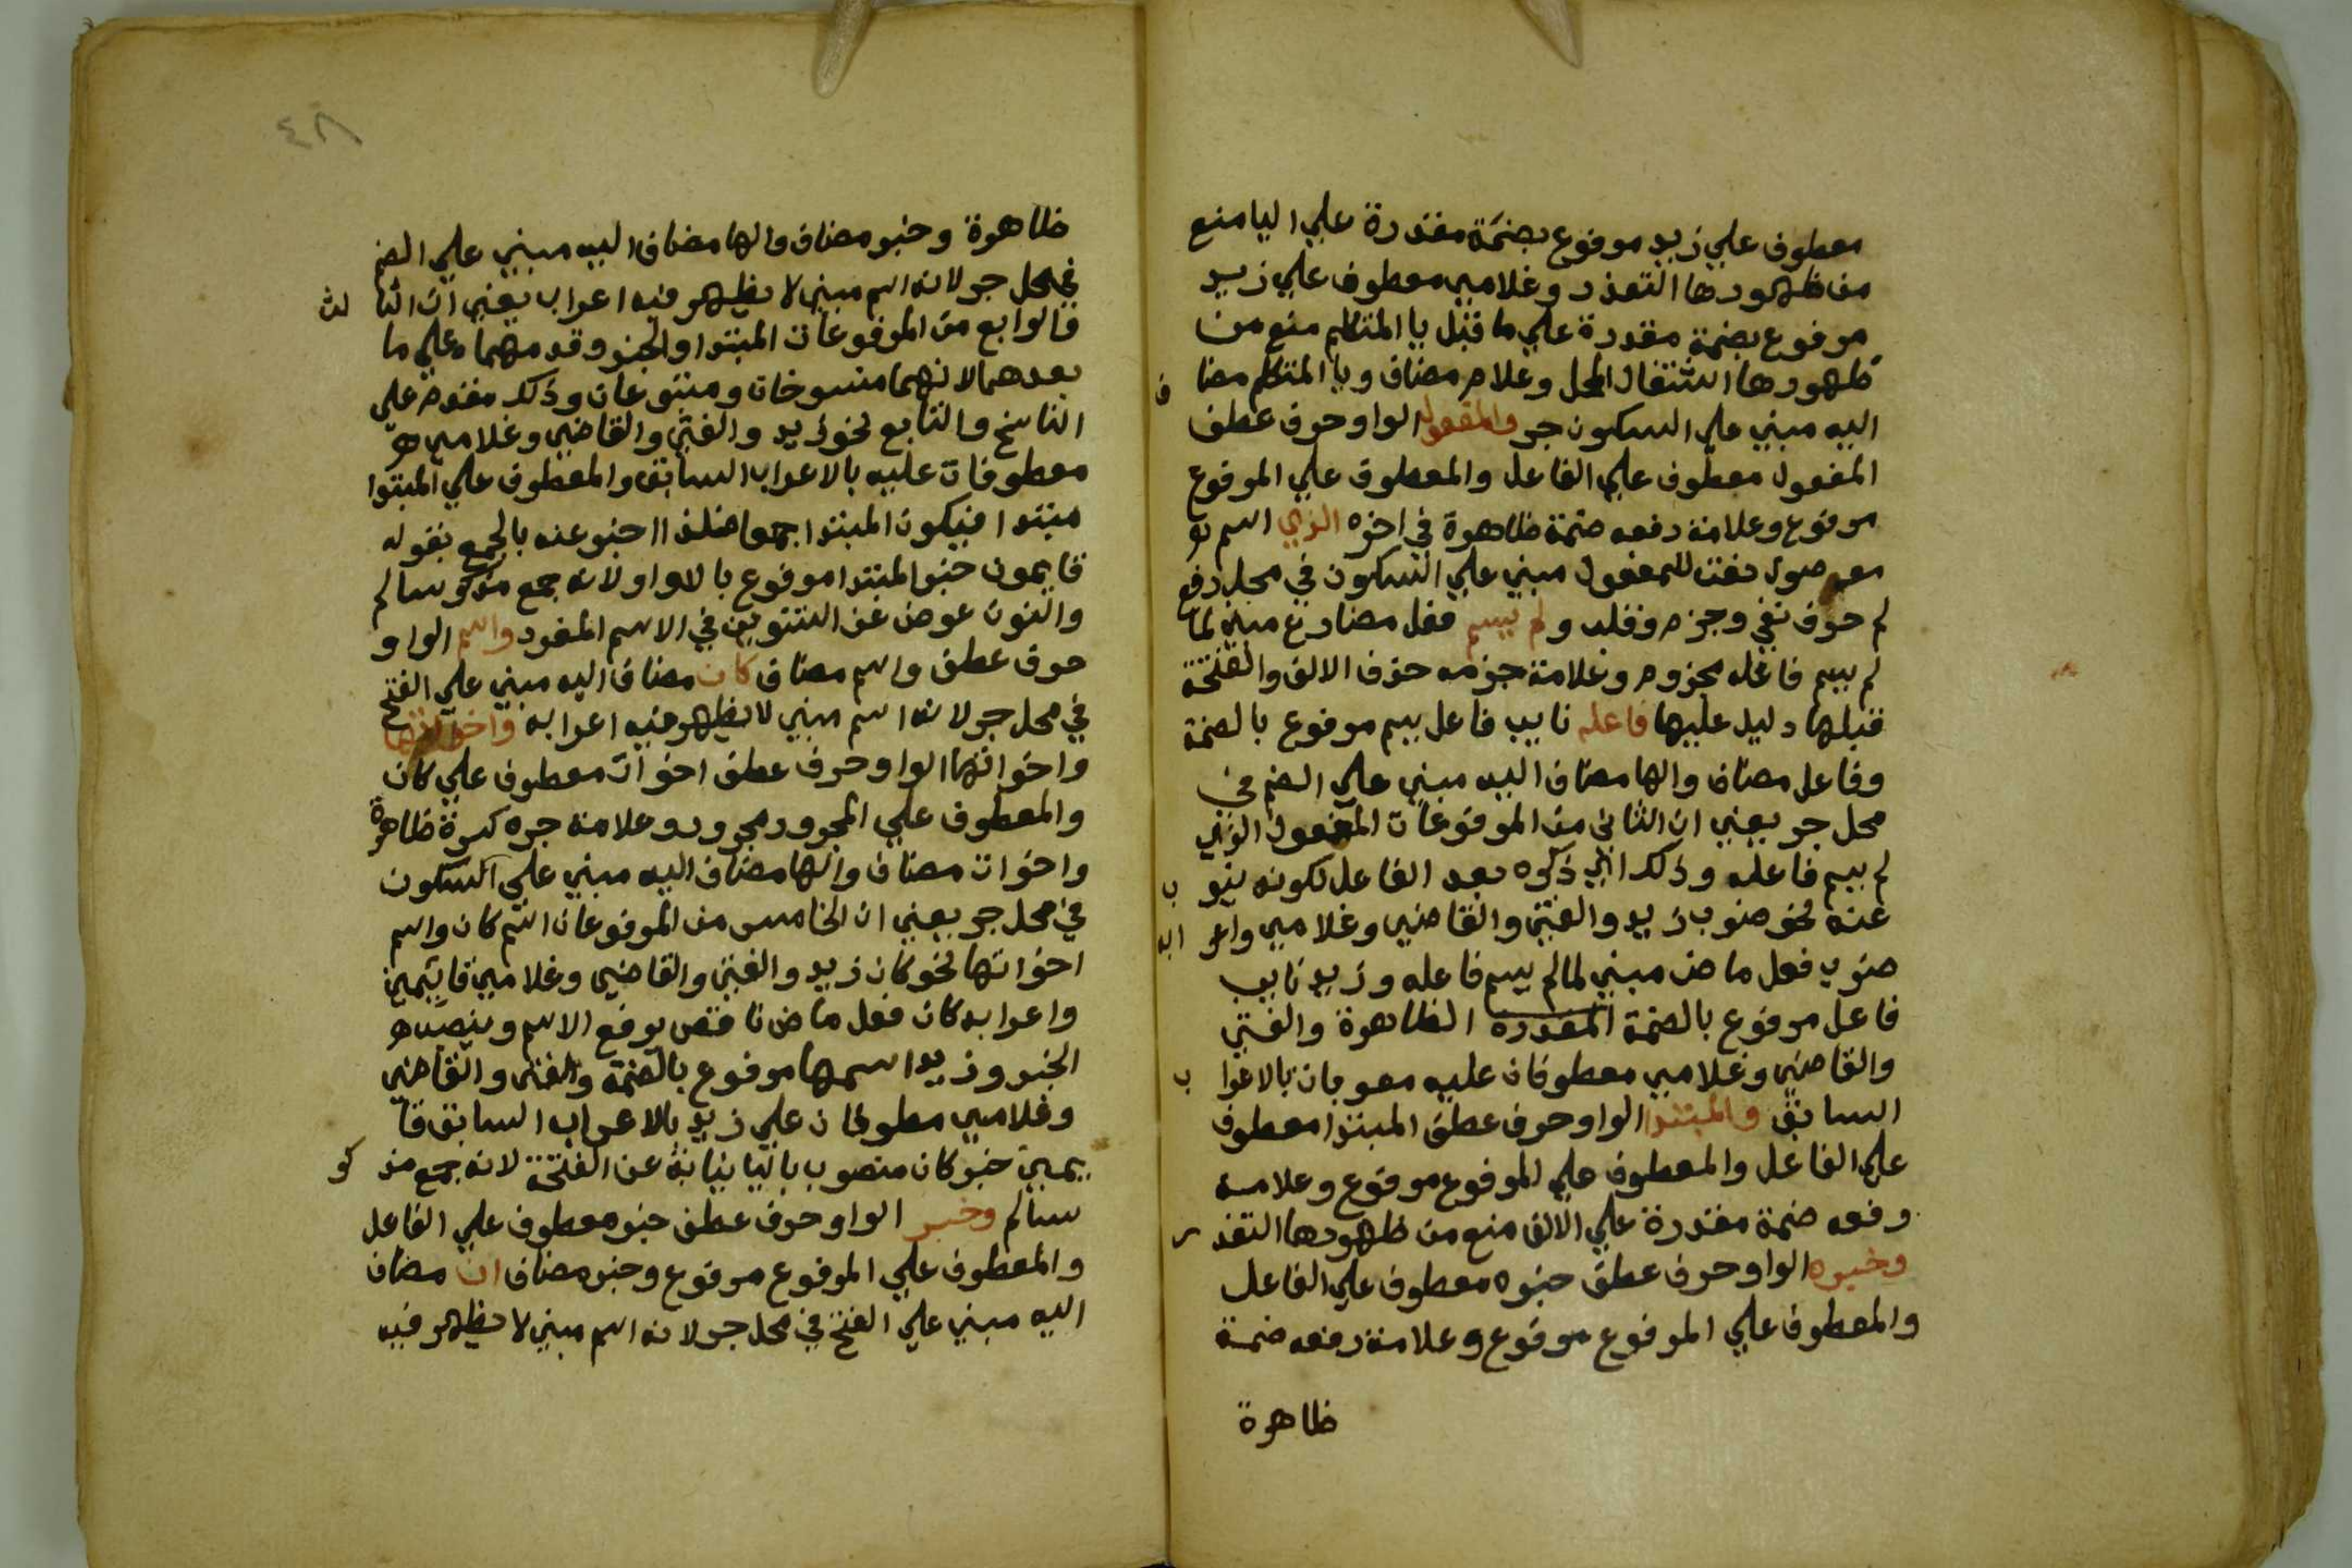 معطوف علي زيد مرفوع بضمة مقدرة علي اليا منع
من ظهورها التعذر وغلامي معطوف علي زيد
مرفوع بضمة مقدرة علي ما قبل يا المتكلم منع من
ظهورها اشتغال المحل وغلام مضاف ويا المتكلم مضا ف
اليه مبني علي السكون جر والمفعول الواو حرف عطف
المفعول معطوف علي الفاعل والمعطوف علي المرفوع
مرفوع وعلامة رفعه ضمة ظاهرة في اخره الذي اسم
موصول نعت للمفعول مبني علي السكون في محل رفع
لم حرف نفي وجزم وقلب ولم يسم فعل مضارع مبني لما
لم يسم فاعله مجزوم وعلامة جزمه حذف الالف والفتحة
قبلها دليل عليها فاعله نايب فاعل يسم مرفوع بالضمة
وفاعل مضاف والها مضاف اليه مبني علي الضم في
محل جر يعني ان الثاني من المرفوعات المفعول الذي
لم يسم فاعله وذلك اي ذكره بعد الفاعل لكونه ينو ب
عنه نحو ضرب زيد والفتي والقاضي وغلامي واعر ابه
ضرب فعل ماض مبني لما لم يسم فاعله وزيد نايب
فاعل مرفوع بالضمة المقدره الظاهرة والفتي
والقاضي وغلامي معطوفان عليه معربان بالاعرا ب
السابق والمبتدا الواو حرف عطف المبتدا معطوف
علي الفاعل والمعطوف علي المرفوع مرفوع وعلامة
رفعه ضمة مقدرة علي الالف منع من ظهورها التعذ ر
وخبره الواو حرف عطف خبره معطوف علي الفاعل
والمعطوف علي المرفوع مرفوع وعلامة رفعه ضمة
ظاهرة
٤٨
ظاهرة وخبر مضاف والها مضاف اليه مبني علي الضم
في محل جر لانه اسم مبني لا يظهر فيه اعراب يعني ان الثا لث
فالرابع من المرفوعات المبتدا والخبر وقدمهما علي ما
بعدهما لانهما منسوخات ومتبوعان وذلك مقدم علي
الناسخ والتابع نحو زيد والفتي والقاضي وغلامي
معطوفات عليه بالاعراب السابق والمعطوف علي المبتدا
مبتدا فيكون المبتدا جمعا فلذا اخبر عنه بالجمع بقوله
قايمون خبر المبتدا مرفوع بالواو لانه جمع مذكر سالم
والنون عوض عن التنوين في الاسم المفرد واسم الواو
حرف عطف واسم مضاف كان مضاف اليه مبني علي الفتح
في محل جر لانه اسم مبني لا يظهر فيه اعرابه واخواتها
واخواتها الواو حرف عطف اخوات معطوف علي كان
والمعطوف علي المجرور مجرور وعلامة جره كسرة ظاهرة
واخوات مضاف والها مضاف اليه مبني علي السكون
في محل جر يعني ان الخامس من المرفوعات اسم كان واسم
اخواتها نحو كان زيد والفتي والقاضي وغلامي قايمين
واعرابه كان فعل ماض ناقص يرفع الاسم وينصب
الخبر وزيد اسمها مرفوع بالضمة والفتي والقاضي
وغلامي معطوفان علي زيد بالاعراب السابق قا
يمين خبر كان منصوب باليا نيابة عن الفتحة لانه جمع مذ كر
سالم وخبر الواو حرف عطف خبر معطوف علي الفاعل
والمعطوف علي المرفوع مرفوع وخبر مضاف ان مضاف
اليه مبني علي الفتح في محل جر لانه اسم مبني لا يظهر فيه